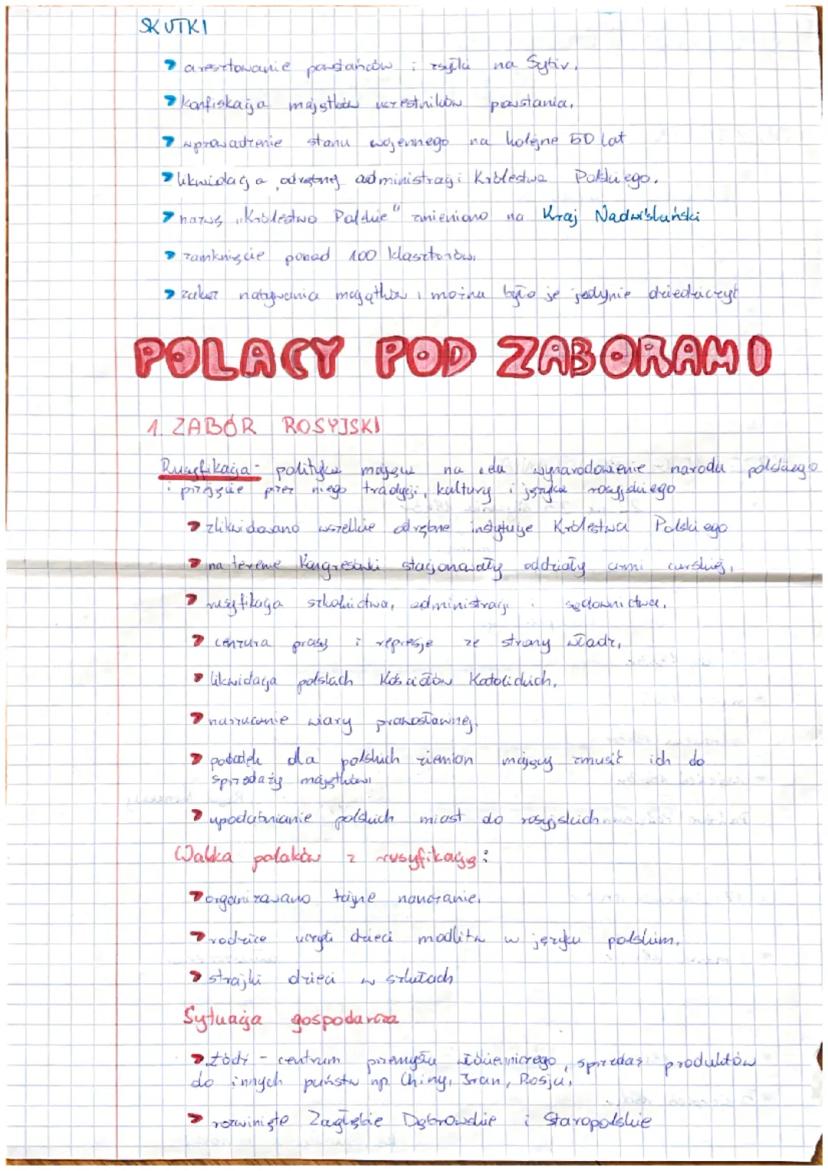 SKUTKI
aresztowanie powstańców i zsyłki na Sybir.
konfiskacja majątków uczestników powstania.
wprowadzenie stanu wojennego na kolejne 50 lat
likwidacja odrębnej administracji Królestwa Polskiego.
nazwę „Królestwo Polskie" zmieniono na Kraj Nadwiślański
zamknięcie ponad 100 klasztorów.
zakaz nabywania majątków i można było je jedynie dziedziczyć
POLACY POD ZABORAMI
1. ZABÓR ROSYJSKI
Rusyfikacja - polityka mająca na celu wynarodowienie narodu polskiego
i przyjęcie przez niego tradycji, kultury i języka rosyjskiego
zlikwidowano wszelkie odrębne instytucje Królestwa Polskiego
na terenie Kongresówki stacjonowały oddziały armi carskiej.
rusyfikacja szkolnictwa, administracji i sądownictwa.
cenzura prasy i represje ze strony władz.
likwidacja polskich Kościołów Katolickich.
narzucanie wiary prawosławnej.
podatek dla polskich ziemian mający zmusić ich do
sprzedaży majątków
upodabnianie polskich miast do rosyjskich
Walka polaków z rusyfikacją:
organizowano tajne nauczanie.
rodzice uczyli dzieci modlitw w języku polskim.
strajki dzieci w szkołach
Sytuacja gospodarcza
Łódź - centrum przemysłu włókienniczego, sprzedaż produktów
do innych państw np. Chiny, Iran, Rosja.
rozwinięte Zagłębie Dąbrowskie i Staropolskie